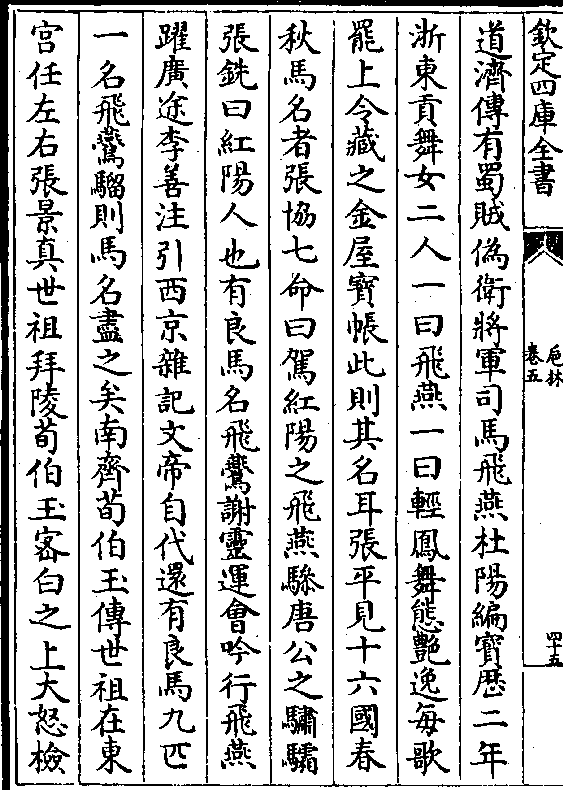 欽定四庫全書
卮林
卷五
四十五
道濟傳有蜀賊偽衛將軍司馬飛燕杜陽編寳厯二年
浙東貢舞女二人一曰飛燕一曰輕鳳舞態艶逸每歌
罷上令藏之金屋寳帳此則其名耳張平見十六國春
秋馬名者張協七命曰駕紅陽之飛燕驂唐公之驌驦
張銑曰紅陽人也有良馬名飛鷰謝靈運會吟行飛燕
躍廣途李善注引西京雜記文帝自代還有良馬九匹
一名飛鷰騮則馬名盡之矣南齊荀伯玉傳世祖在東
宫任左右張景真世祖拜陵荀伯玉宻白之上大怒檢